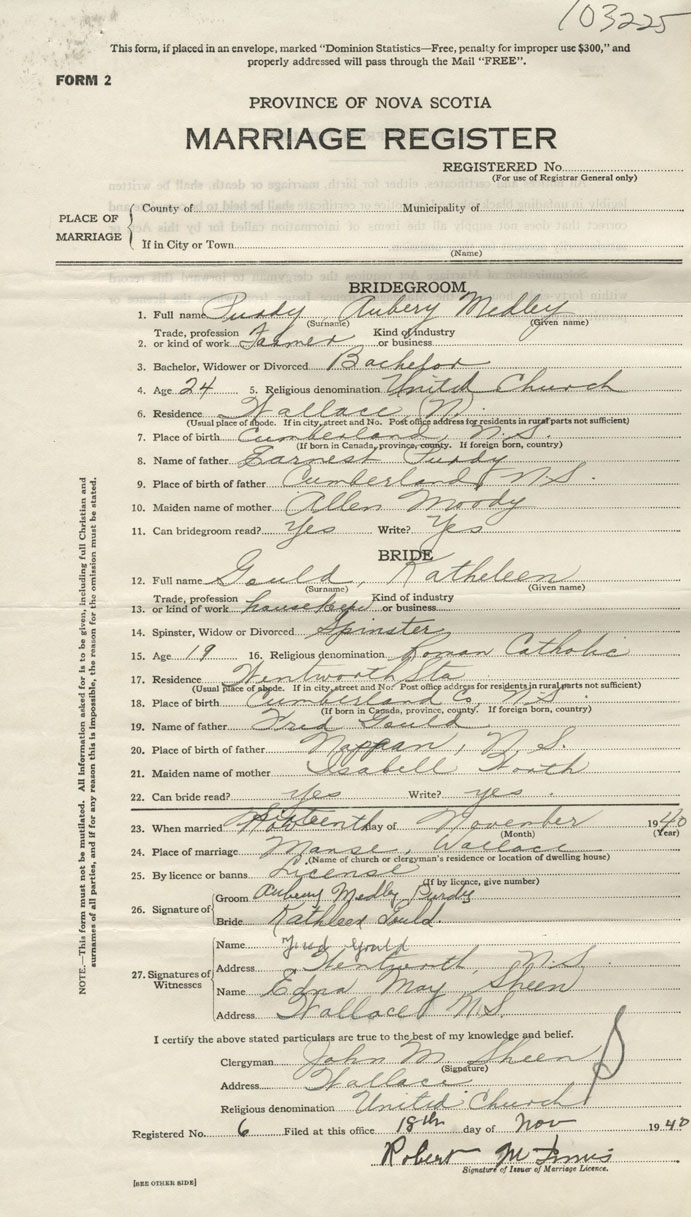 103225
This form, if placed in an envelope, marked "Dominion Statistics—Free, penalty for improper use $300," and
properly addressed will pass through the Mail "FREE".
FORM 2
PROVINCE OF NOVA SCOTIA
MARRIAGE REGISTER
REGISTERED No.
(For use of Registrar General only)
PLACE OF MARRIAGE
County of Municipality of
If in City or Town
(Name)
BRIDEGROOM
1. Full name Purdy Aubery Medley
(Surname) (Given name)
Trade, profession Kind of industry
2. or kind of work Farmer or business
3. Bachelor, Widower or Divorced Bachelor
4. Age 24 5. Religious denomination United Church
6. Residence Wallace N.
(Usual place of abode. If in city, street and No. Post office address for residents in rural parts not sufficient)
7. Place of birth Cumberland, N.S.
(If born in Canada, province, county. If foreign born, country)
8. Name of father Earnest Purdy
9. Place of birth of father Cumberland, N.S.
10. Maiden name of mother Allen Moody
11. Can bridegroom read? Yes Write? Yes
BRIDE
12. Full name Gould, Katheleen
(Surname) (Given name)
Trade, profession Kind of industry
13. or kind of work or business
14. Spinster, Widow or Divorced Spinster
15. Age 19 16. Religious denomination Roman Catholic
17. Residence Wentworth Sta
(Usual place of abode. If in city, street and No. Post office address for residents in rural parts not sufficient)
18. Place of birth Cumberland Co. N.S
(If born in Canada, province, county. If foreign born, country)
19. Name of father Fred Gould
20. Place of birth of father Nappan, N.S.
21. Maiden name of mother Isabell
22. Can bride read? yes Write? yes.
23. When married Sixteenth day of November 1940
(Month) (Year)
24. Place of marriage Manse, Wallace
(Name of church or clergyman's residence or location of dwelling house)
25. By licence or banns License
(If by licence, give number)
26. Signature of
Groom Aubery Medley Purdy
Bride Kathleen Gould.
27. Signatures of Witnesses
Name Fred Gould
Address Wentworth, N.S.
Name Edna May Sheen
Address Wallace N.S.
I certify the above stated particulars are true to the best of my knowledge and belief.
Clergyman John M. Sheen
(Signature)
Address Wallace
Religious denomination United Church
Registered No. 6 Filed at this office 18th day of Nov 1940
Robert
Signature of Issuer of Marriage Licence.
[SEE OTHER SIDE]
NOTE.—This form must not be mutilated. All information asked for is to be given, including full Christian and
surnames of all parties, and if for any reason this is impossible, the reason for the omission must be stated.